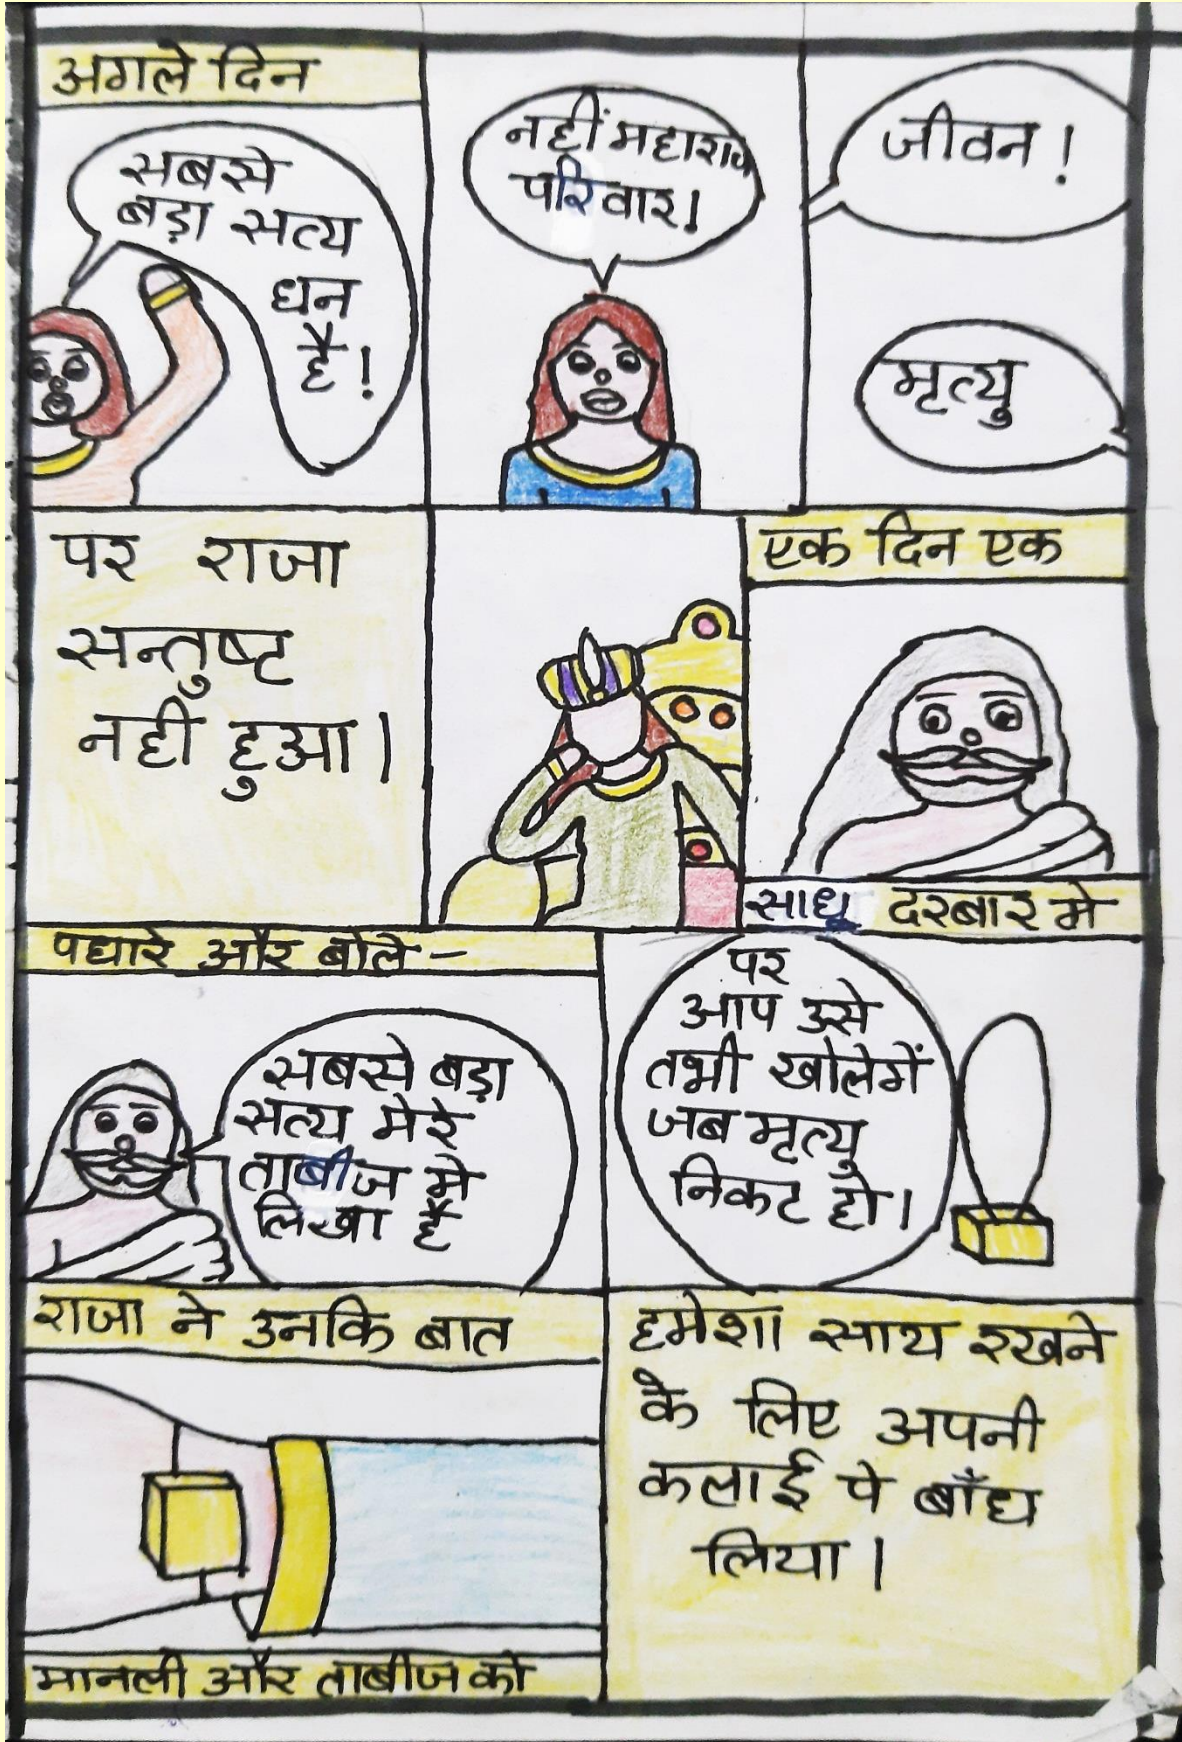 अगले दिन
सबसे
बड़ा सत्य
धन
है!
नहीं महाराज
परिवार।
जीवन!
मृत्यु
पर राजा
सन्तुष्ट
नहीं हुआ।
एक दिन एक
साधू दरबार मे
पधारे और बोले -
सबसे बड़ा
सत्य मेरे
ताबीज मे
लिखा है
पर
आप उसे
तभी खोलेगें
जब मृत्यु
निकट हो।
राजा ने उनकि बात
मानली और ताबीज को
हमेशा साथ रखने
के लिए अपनी
कलाई पे बाँध
लिया।